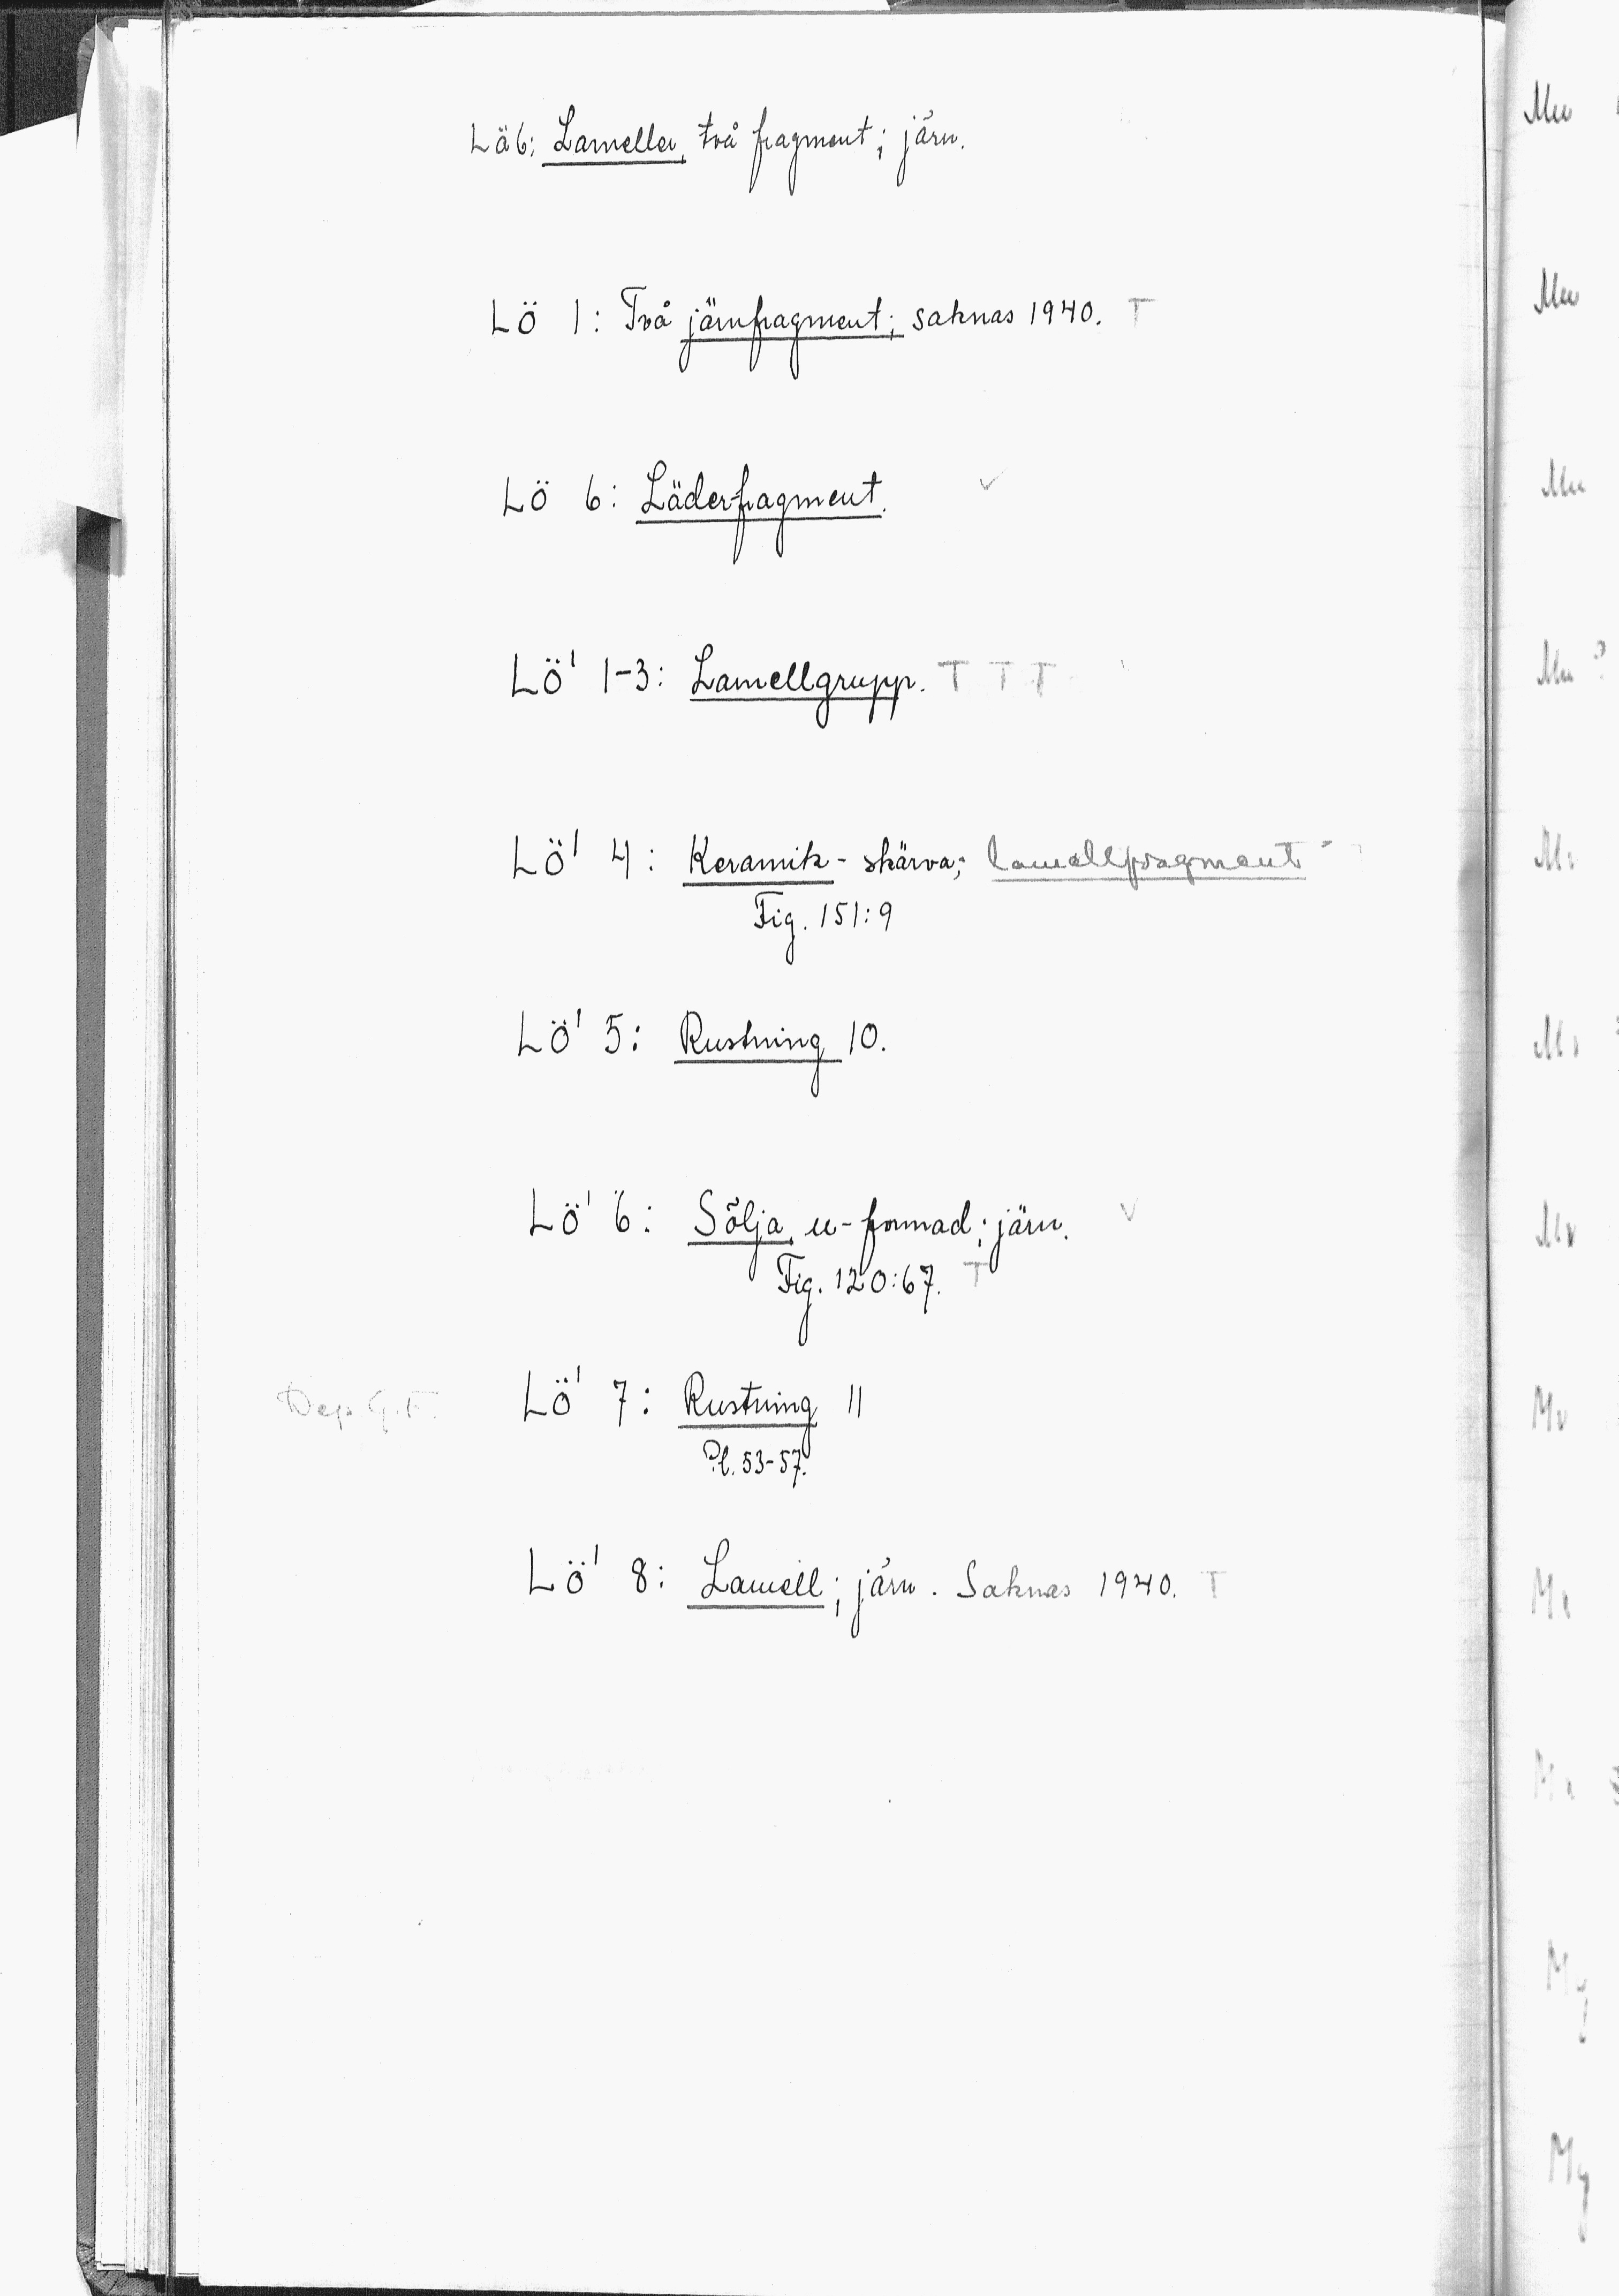 Lä6: Lameller, två fragment; järn.
Lö 1: Två järnfragment; saknas 1940. T
Lö 6: Läderfragment. ✓
Lö' 1-3: Lamellgrupp. T T T
Lö' 4: Keramik-skärva; lamellfragment
Fig. 151:9
Lö' 5: Rustning 10.
Lö' 6: Sölja, u-formad; järn. V
Fig. 120:67. T
Dep. G.F. Lö' 7: Rustning 11
Pl. 53-57.
Lö' 8: Lamell; järn. Saknas 1940. T